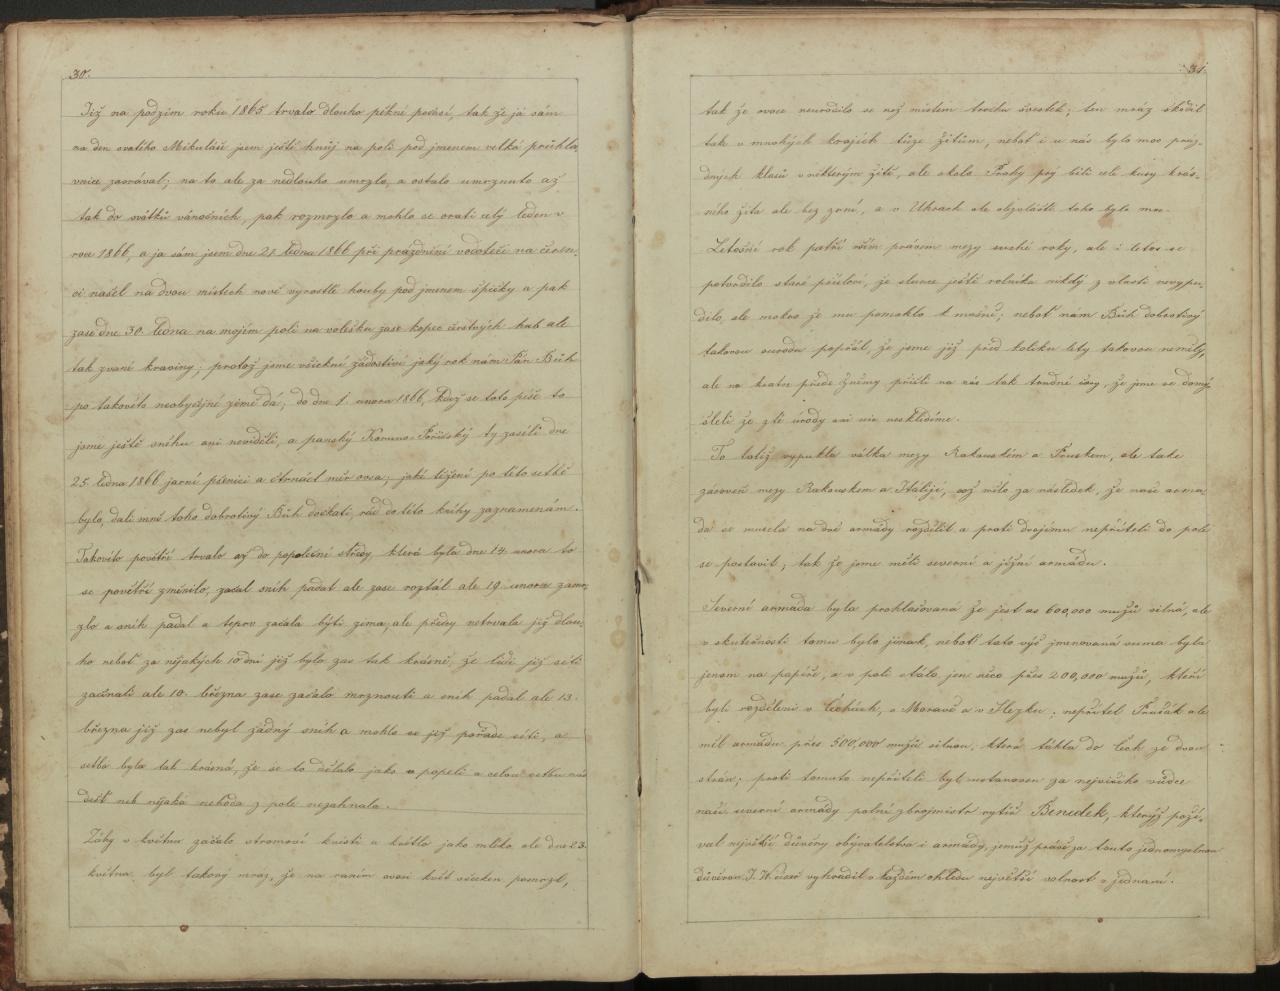 30.
Již na podzim roku 1865 trvalo dlouho pěkné počasí, tak že já sám
na den svatého Mikuláše jsem ještě hnůj na poli pod jmenem velká přihla-
vnice zaorával; na to ale za nedlouho umrzlo, a ostalo umrznuto až
tak do svátků vánočních, pak rozmrzlo a mohlo se orati celý leden v
roce 1866, a ja sám jsem dne 21. ledna 1866 při prázdnění vodoteče na
ci našel na dvou místech nově vyrostlé houby pod jmenem špičky a pak
zase dne 30. ledna na mojím poli na volešku zase kopec čerstvých hub ale
tak zvané kraviny; protož jsme všickni žádostivi jaký rok nám Pán Bůh
po takovéto neobyčejné zimě dá; do dne 1. unora 1866, když se toto píše to
jsme ještě sněhu ani neviděli, a panský ty zaseli dne
25. ledna 1866 jarní pšenici a čtrnáct měr ovsa; jaké této setbě
bylo, dali mně toho dobrotivý Bůh dočkati, rád do této knihy zaznamenám.
Takovéto povětří trvalo až do popoleční středy, která byla dne 14. unora to
se povětří změnilo, začal sníh padat ale zase roztál ale 19. unora zamr-
zlo a sníh padal a teprv začala býti zima, ale přeci netrvala již dlou-
ho neboť za nějakých 10 dní již bylo zas tak krásně, že lidi již síti
začínali ale 10. března zase začalo mrznouti a sníh padal ale 13.
března již zas nebyl žádný sníh a mohlo se již pořáde síti, a
setba byla tak krásná, že se to dělalo jako v popeli a celou setbu nás
dešť neb nějaká nehoda z pole nezahnala.
Záhy v květnu začalo stromoví kvísti a kvetlo jako mléko, ale dne 23.
května byl takový mraz, že na raním ovoci květ všecken pomrzl,
31.
tak že ovoce neurodilo se než místem trochu švestek; ten mráz škodil
tak v mnohých krajích tůze žitům, neboť i u nás bylo moc práz-
dných klasů v některým žitě, ale okolo Prahy prý byli celé kusy krás-
ného žita ale bez zrní, a v Uhrách ale obzvláště toho bylo
Letošní rok patří vším právem mezy suché roky, ale i letos se
potvrdilo staré přísloví, že slunce ještě rolníka nikdý z vlasti nevypu-
dilo, ale mokro že mu pomohlo k mošně; neboť nám Bůh dobrotivý
takovou ourodu popřál, že jsme již před kolika léty takovou neměly,
ale na krátce přede žněmy přišli na nás tak trudné časy, že jsme se domý-
šleli že z té úrody ani nic nesklidíme.
To totiž vypukla válka mezy Rakouskem a Pruskem, ale take
zároveň mezy Rakouskem a Italijé, což mělo za následek, že naše arma-
da se musela na dvě armady rozdělit a proti dvojímu nepříteli do pole
se postavit, tak že jsme měli severní a jižní armádu.
Severní armada byla prohlašovaná že jest as 600,000 mužů silná, ale
v skutečnosti tomu bylo jinak, neboť tato výš jmenovaná suma byla
jenom na papíře, a v poli stálo jen něco přes 200,000 mužů, kteří
byli rozděleni v Čechách, v Moravě a v Slezku; nepřítel Prušák ale
měl armádu přes 500,000 mužů silnou, která táhla do Čech ze dvou
strán; proti tomuto nepříteli byl ustanoven za nejvišiho vůdce
naší severní armády polní zbrojmistr rytíř Benedek, kterýž poží-
val největší důvěry obývatelstva i armady, jemuž právě za touto jednomyslnou
důvěrou J. V. císař vyhradil v každém ohledu největší volnost v jednaní.